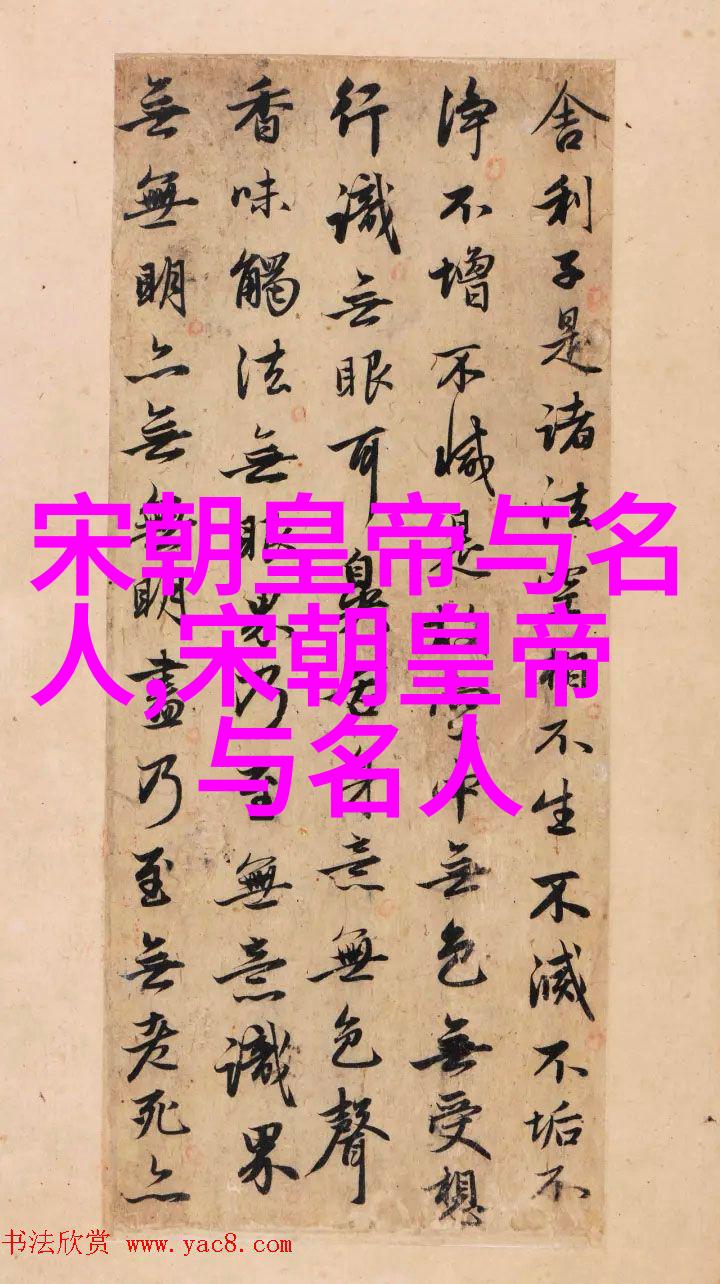 舎利子是诸法空相不生不滅不垢不
净不增不減是故空中無色無受想
行識無眼耳鼻舌身意無色聲
香味觸法無眼界乃至無意識界
無無明亦無無明盡乃至無老死亦
宋朝皇帝与名
人,宋朝皇帝
与名人
书法欣赏 www.yac8.com